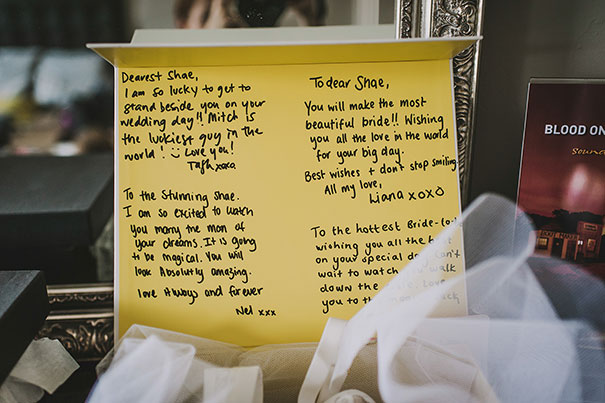 Dearest Shae,
I am so lucky to get to
stand beside you on your
wedding day!! Mitch is
the luckiest guy in the
world! Love you!
Tash xoxo
To the Stunning Shae.
I am so excited to watch
you marry the man of
your dreams. It is going
to be magical. You will
look Absolutly amazing.
love Always and forever
Nel xxx
To dear Shae,
You will make the most
beautiful bride!! Wishing
you all the love in the world
for your big day.
Best wishes + don't stop smiling
All my love,
Liana xoxo
To the hottest Bride-to-
wishing you all the
on your special Can't
wait to watch walk
down the Love
you to the
BLOOD ON